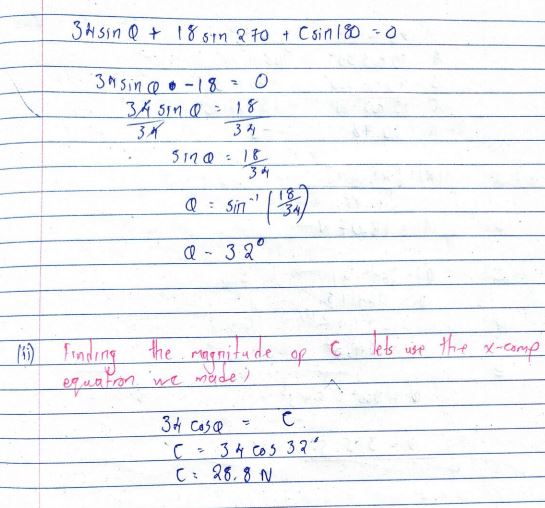 34 sin Q + 18 sin 270 + C sin 180 = 0
34 sin Q - 18 = 0
34 sin Q = 18
34 34
sin Q = 18
34
Q = sin⁻¹ (18/34)
Q - 32°
(ii) Finding the magnitude op C. lets use the x-comp
equation we made;
34 cos Q = C
C = 34 cos 32°
C = 28.8 N